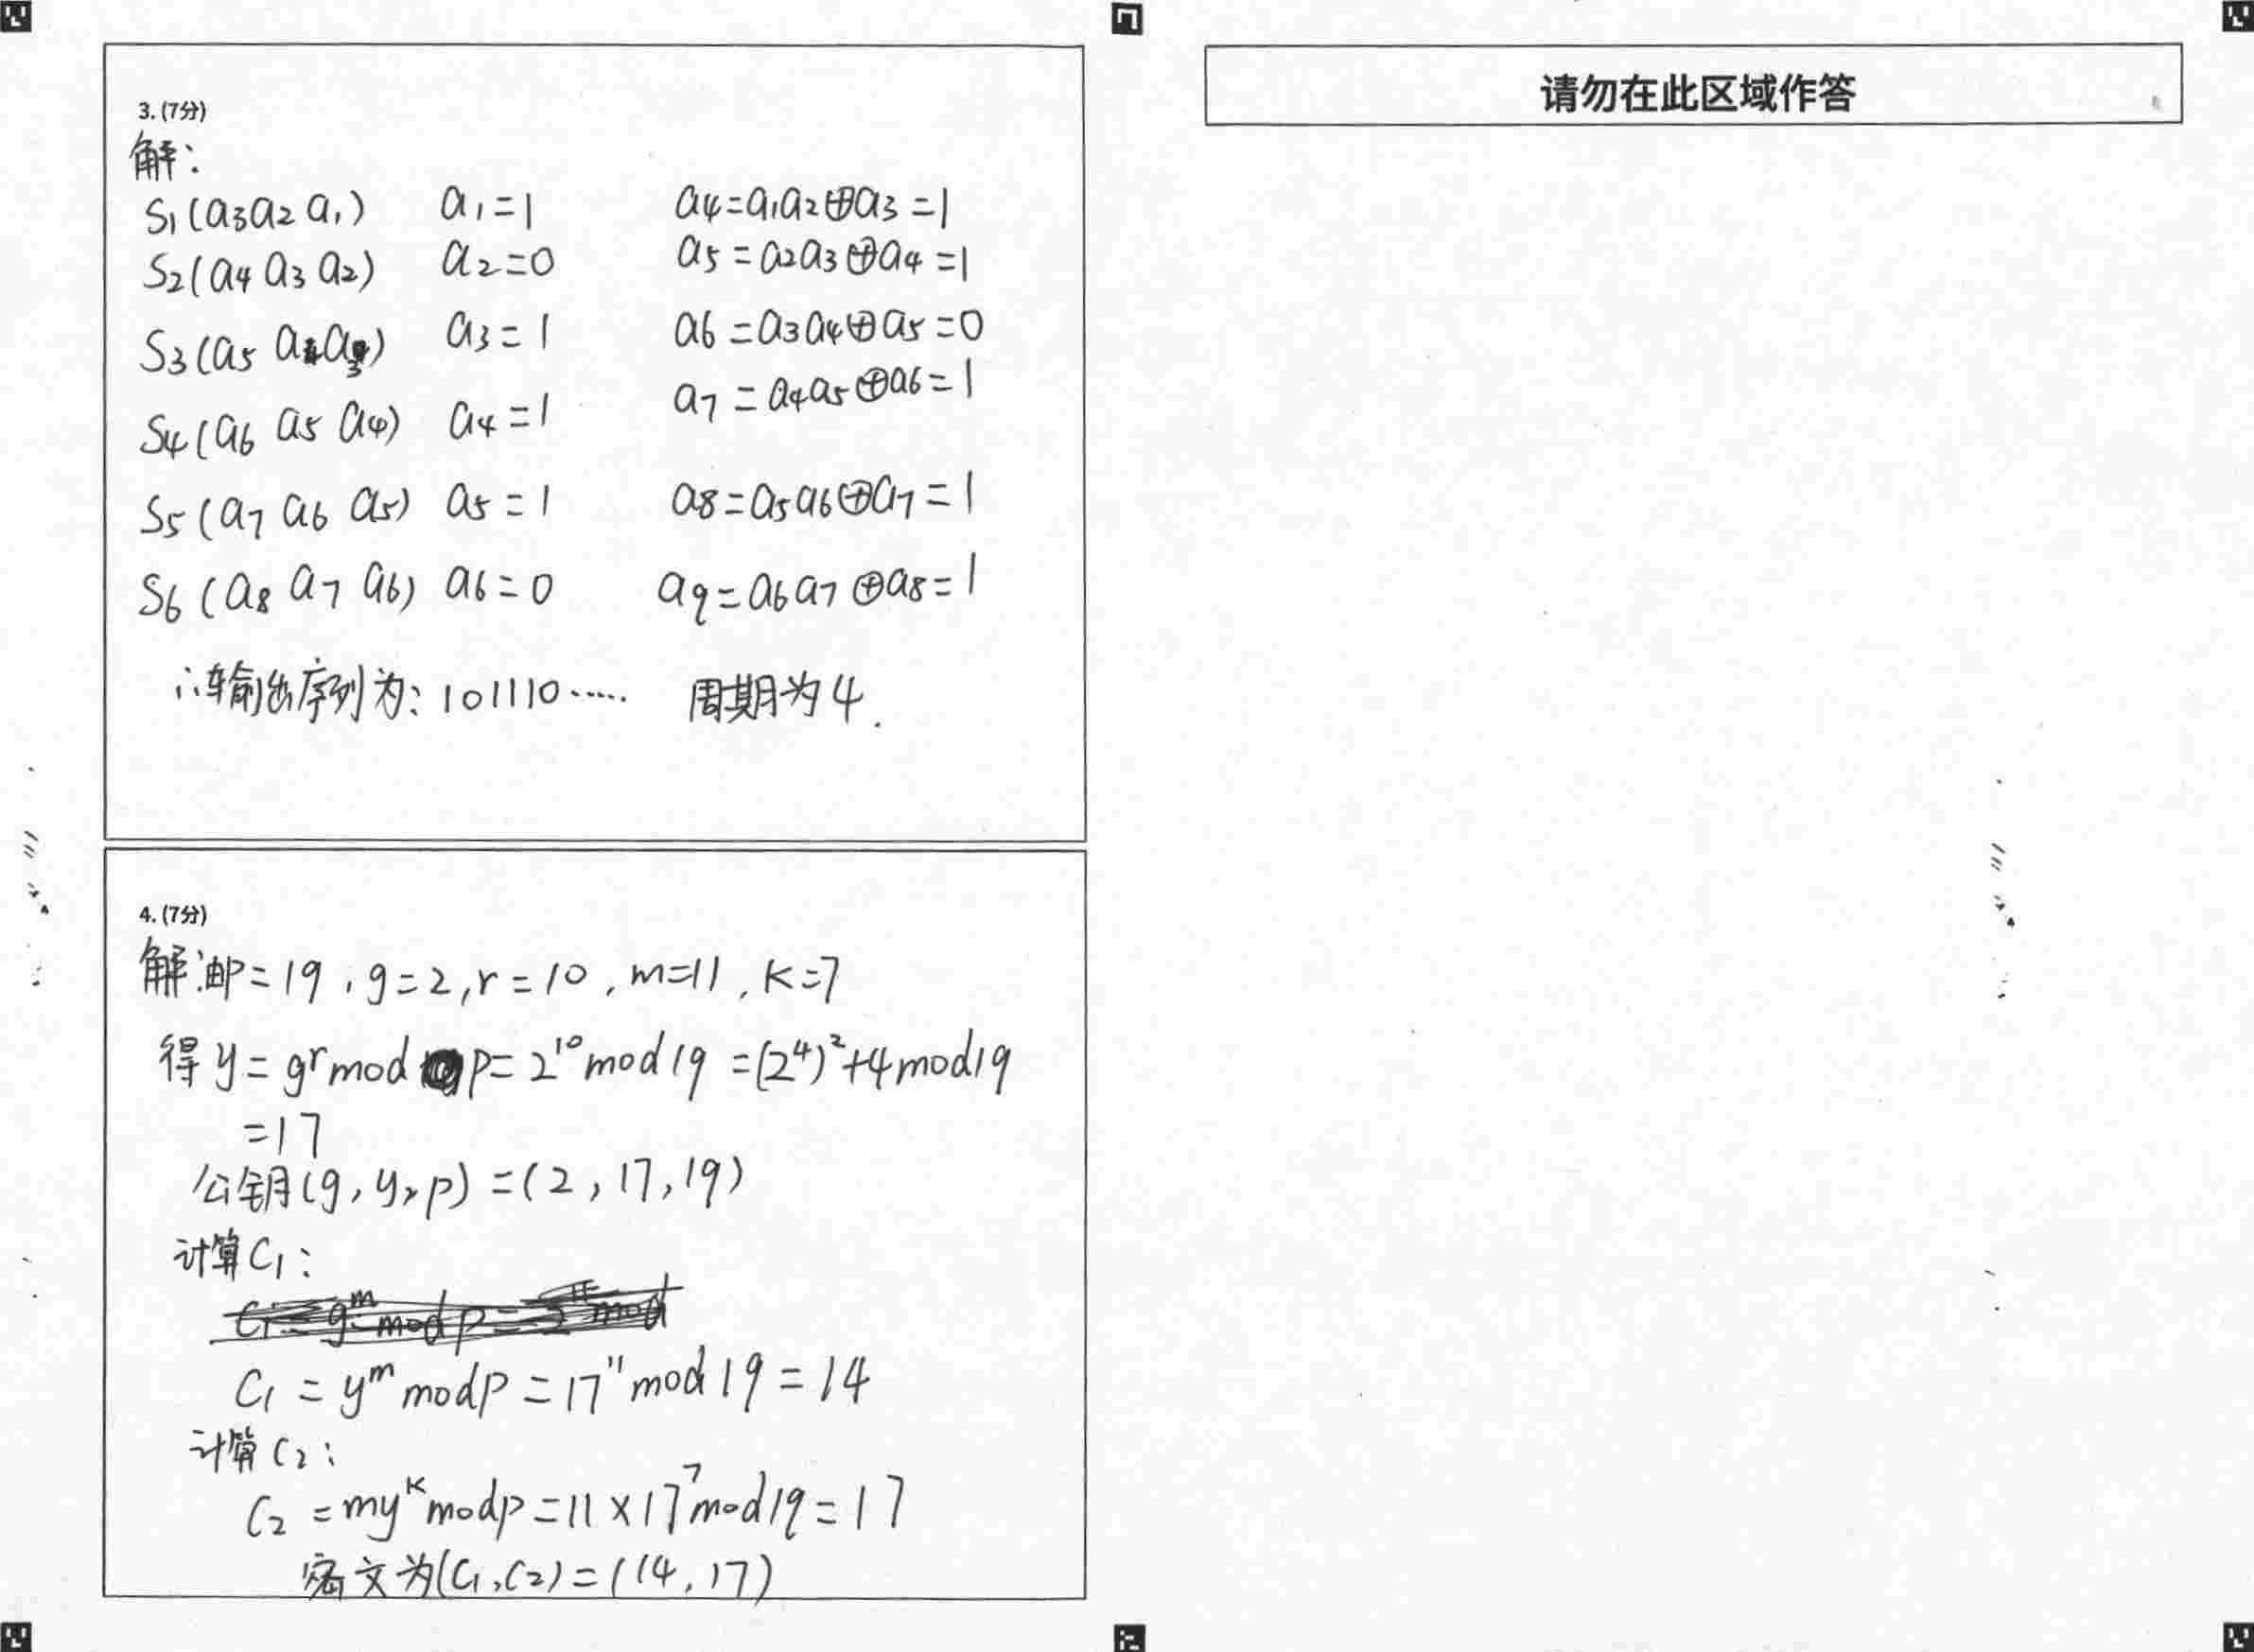 3. (7分)
解：
S₁(a₃a₂a₁) a₁=1 a₄=a₁a₂⊕a₃=1
S₂(a₄a₃a₂) a₂=0 a₅=a₂a₃⊕a₄=1
S₃(a₅a₄a₃) a₃=1 a₆=a₃a₄⊕a₅=0
S₄(a₆a₅a₄) a₄=1 a₇=a₄a₅⊕a₆=1
S₅(a₇a₆a₅) a₅=1 a₈=a₅a₆⊕a₇=1
S₆(a₈a₇a₆) a₆=0 a₉=a₆a₇⊕a₈=1
∴输出序列为：101110…… 周期为4.
4. (7分)
解：由P=19，g=2，r=10，m=11，K=7
得y=gʳmod p=2¹⁰mod19=(2⁴)²+4mod19
=17
公钥(g,y,p)=(2,17,19)
计算C₁：
C₁=yᵐmodp=17¹¹mod19=14
计算C₂：
C₂=myᴷmodp=11×17⁷mod19=17
密文为(C₁,C₂)=(14,17)
请勿在此区域作答